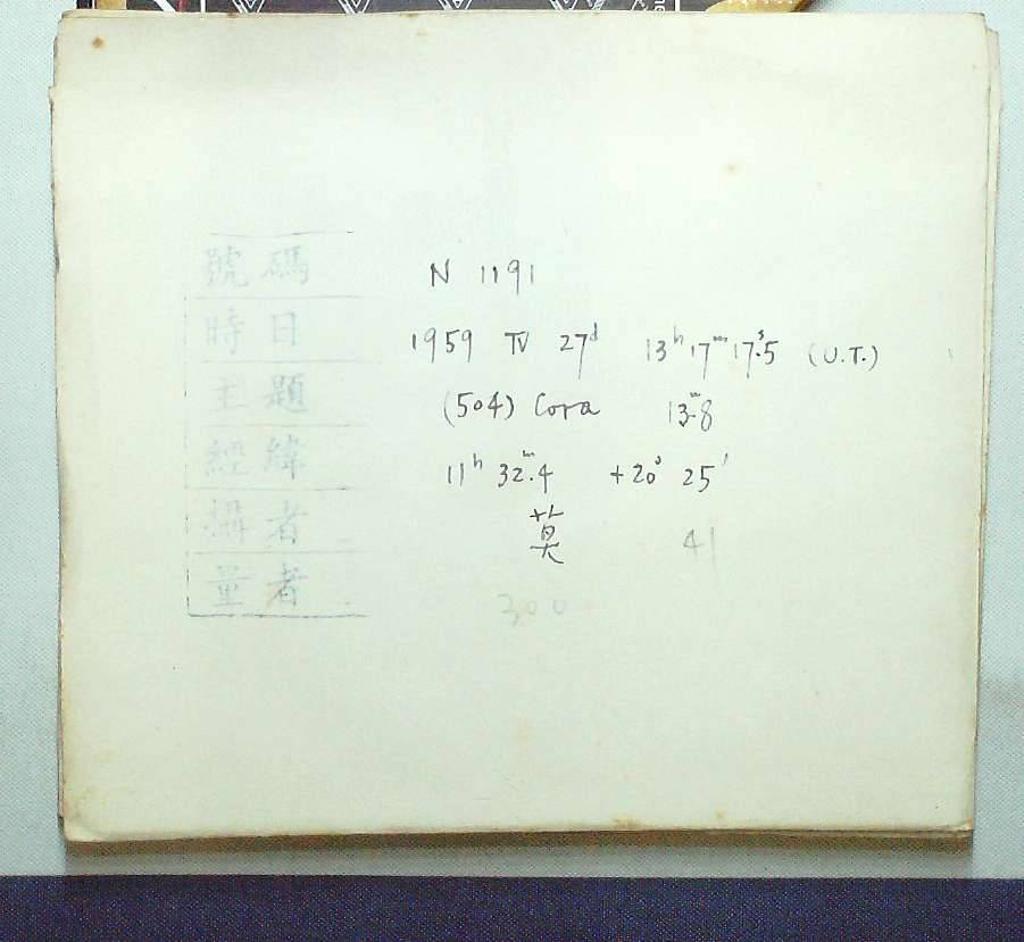 號碼 N 1191
時日 1959 IV 27ᵈ 13ʰ 17ᵐ 17ˢ.5 (U.T.)
主題 (504) Cora 13ᵐ.8
經緯 11ʰ 32ᵐ.4 +20° 25′
攝者 莫 41
量者 300